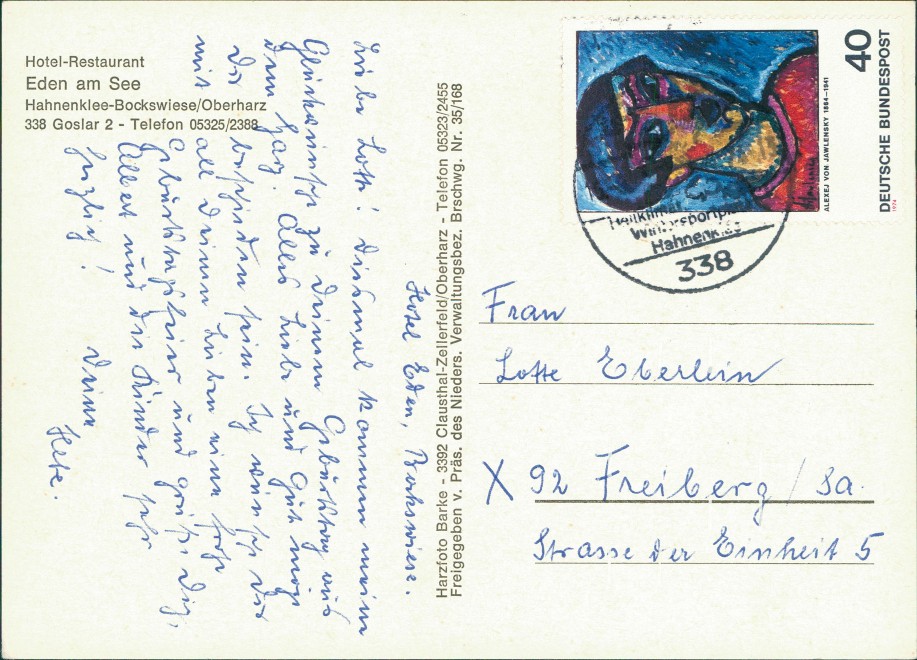 Hotel-Restaurant
Eden am See
Hahnenklee-Bockswiese/Oberharz
338 Goslar 2 - Telefon 05325/2388
Hotel Eden, Bockswiese.
Liebe Lotte! Diesmal kommen meine
Glückwünsche zu Deinem Geburtstag aus
dem Harz. Alles Liebe und Gute möge
Dir beschieden sein. Ich wünsche Dir
mit all Deinen Lieben eine frohe
Geburtstagsfeier und grüße Dich,
Albert und die Kinder sehr
herzlich!
Deine
Harzfoto Barke - 3392 Clausthal-Zellerfeld/Oberharz - Telefon 05323/2455
Freigegeben v. Präs. des Nieders. Verwaltungsbez. Brschwg. Nr. 35/168
ALEXEJ VON JAWLENSKY 1864-1941
40
DEUTSCHE BUNDESPOST
Hahnenklee
338
Frau
Lotte Eberlein
X 92 Freiberg / Sa.
Strasse der Einheit 5